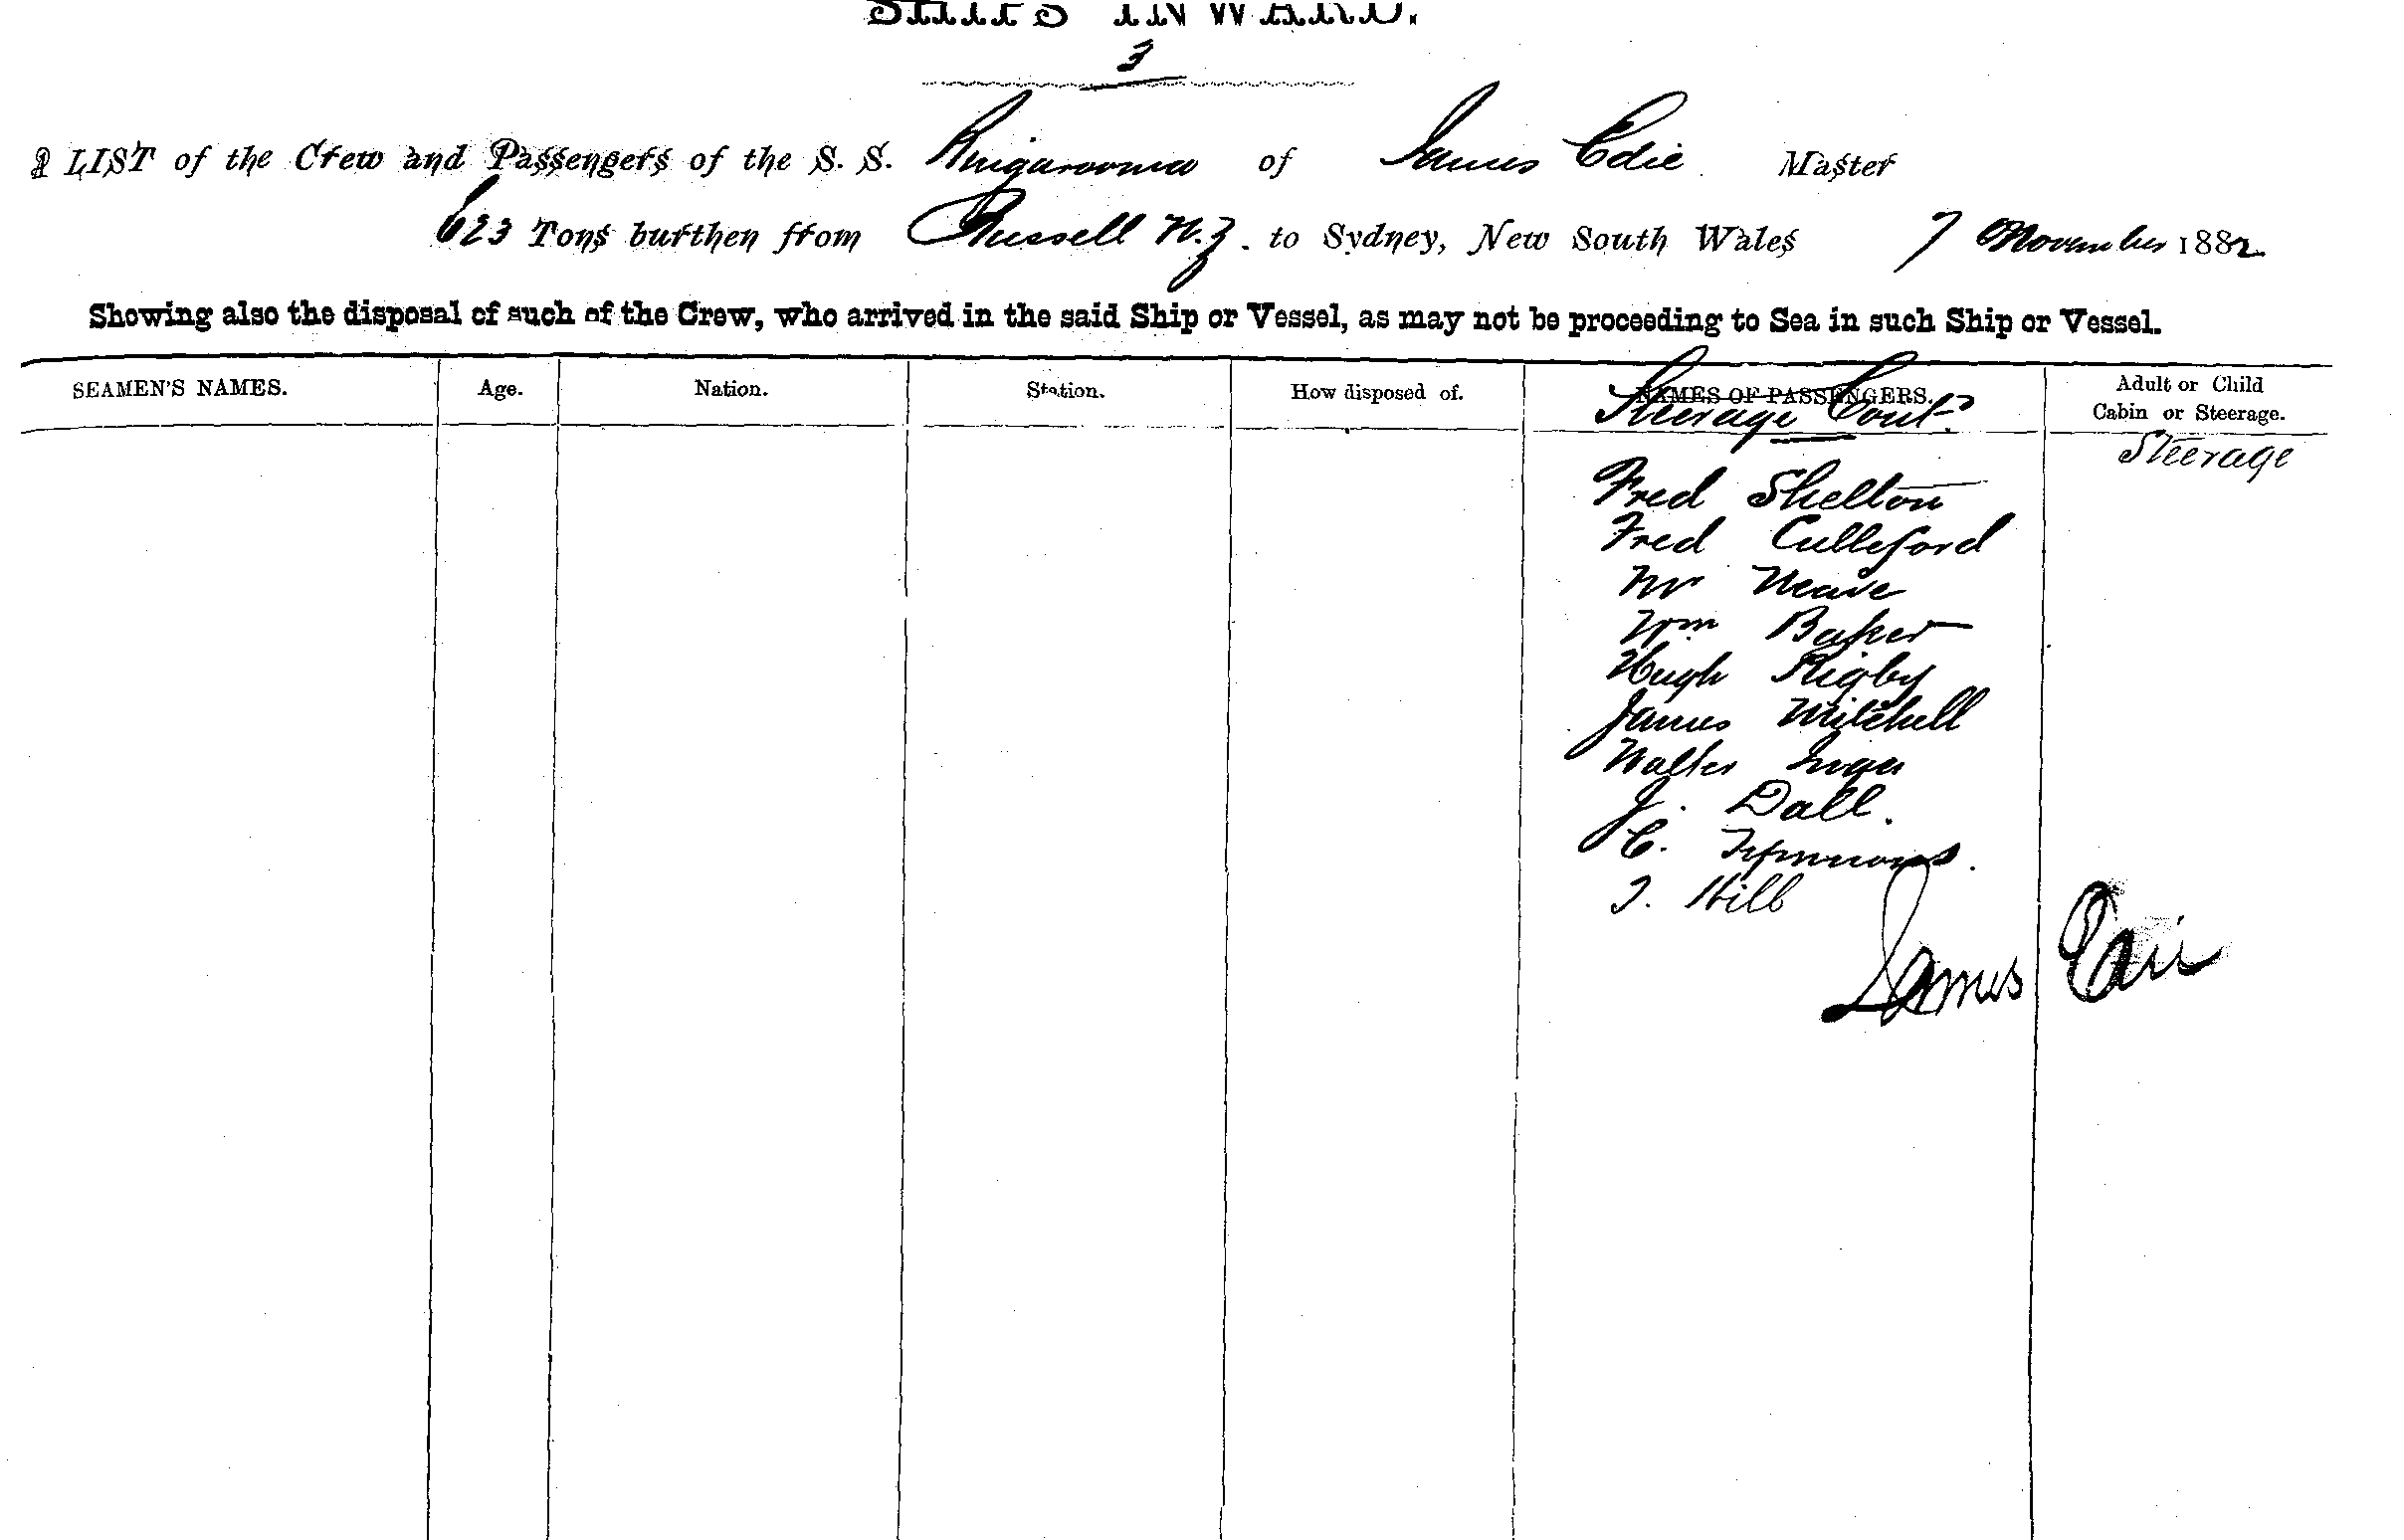 SHIPS INWARD.
3
A LIST of the Crew and Passengers of the S. S. Ringarooma of James Edie Master
623 Tons burthen from Russell N.Z. to Sydney, New South Wales 7 November 1882
Showing also the disposal of such of the Crew, who arrived in the said Ship or Vessel, as may not be proceeding to Sea in such Ship or Vessel.
SEAMEN'S NAMES. Age. Nation. Station. How disposed of. NAMES OF PASSENGERS. Adult or Child
Cabin or Steerage.
Steerage Cont.d
Steerage
Fred Shelton
Fred Culleford
Mr Neave
Wm Baker
Hugh Rigby
James Mitchell
Walter
J. Dall.
C. Tymmons.
T. Hill
James Edie